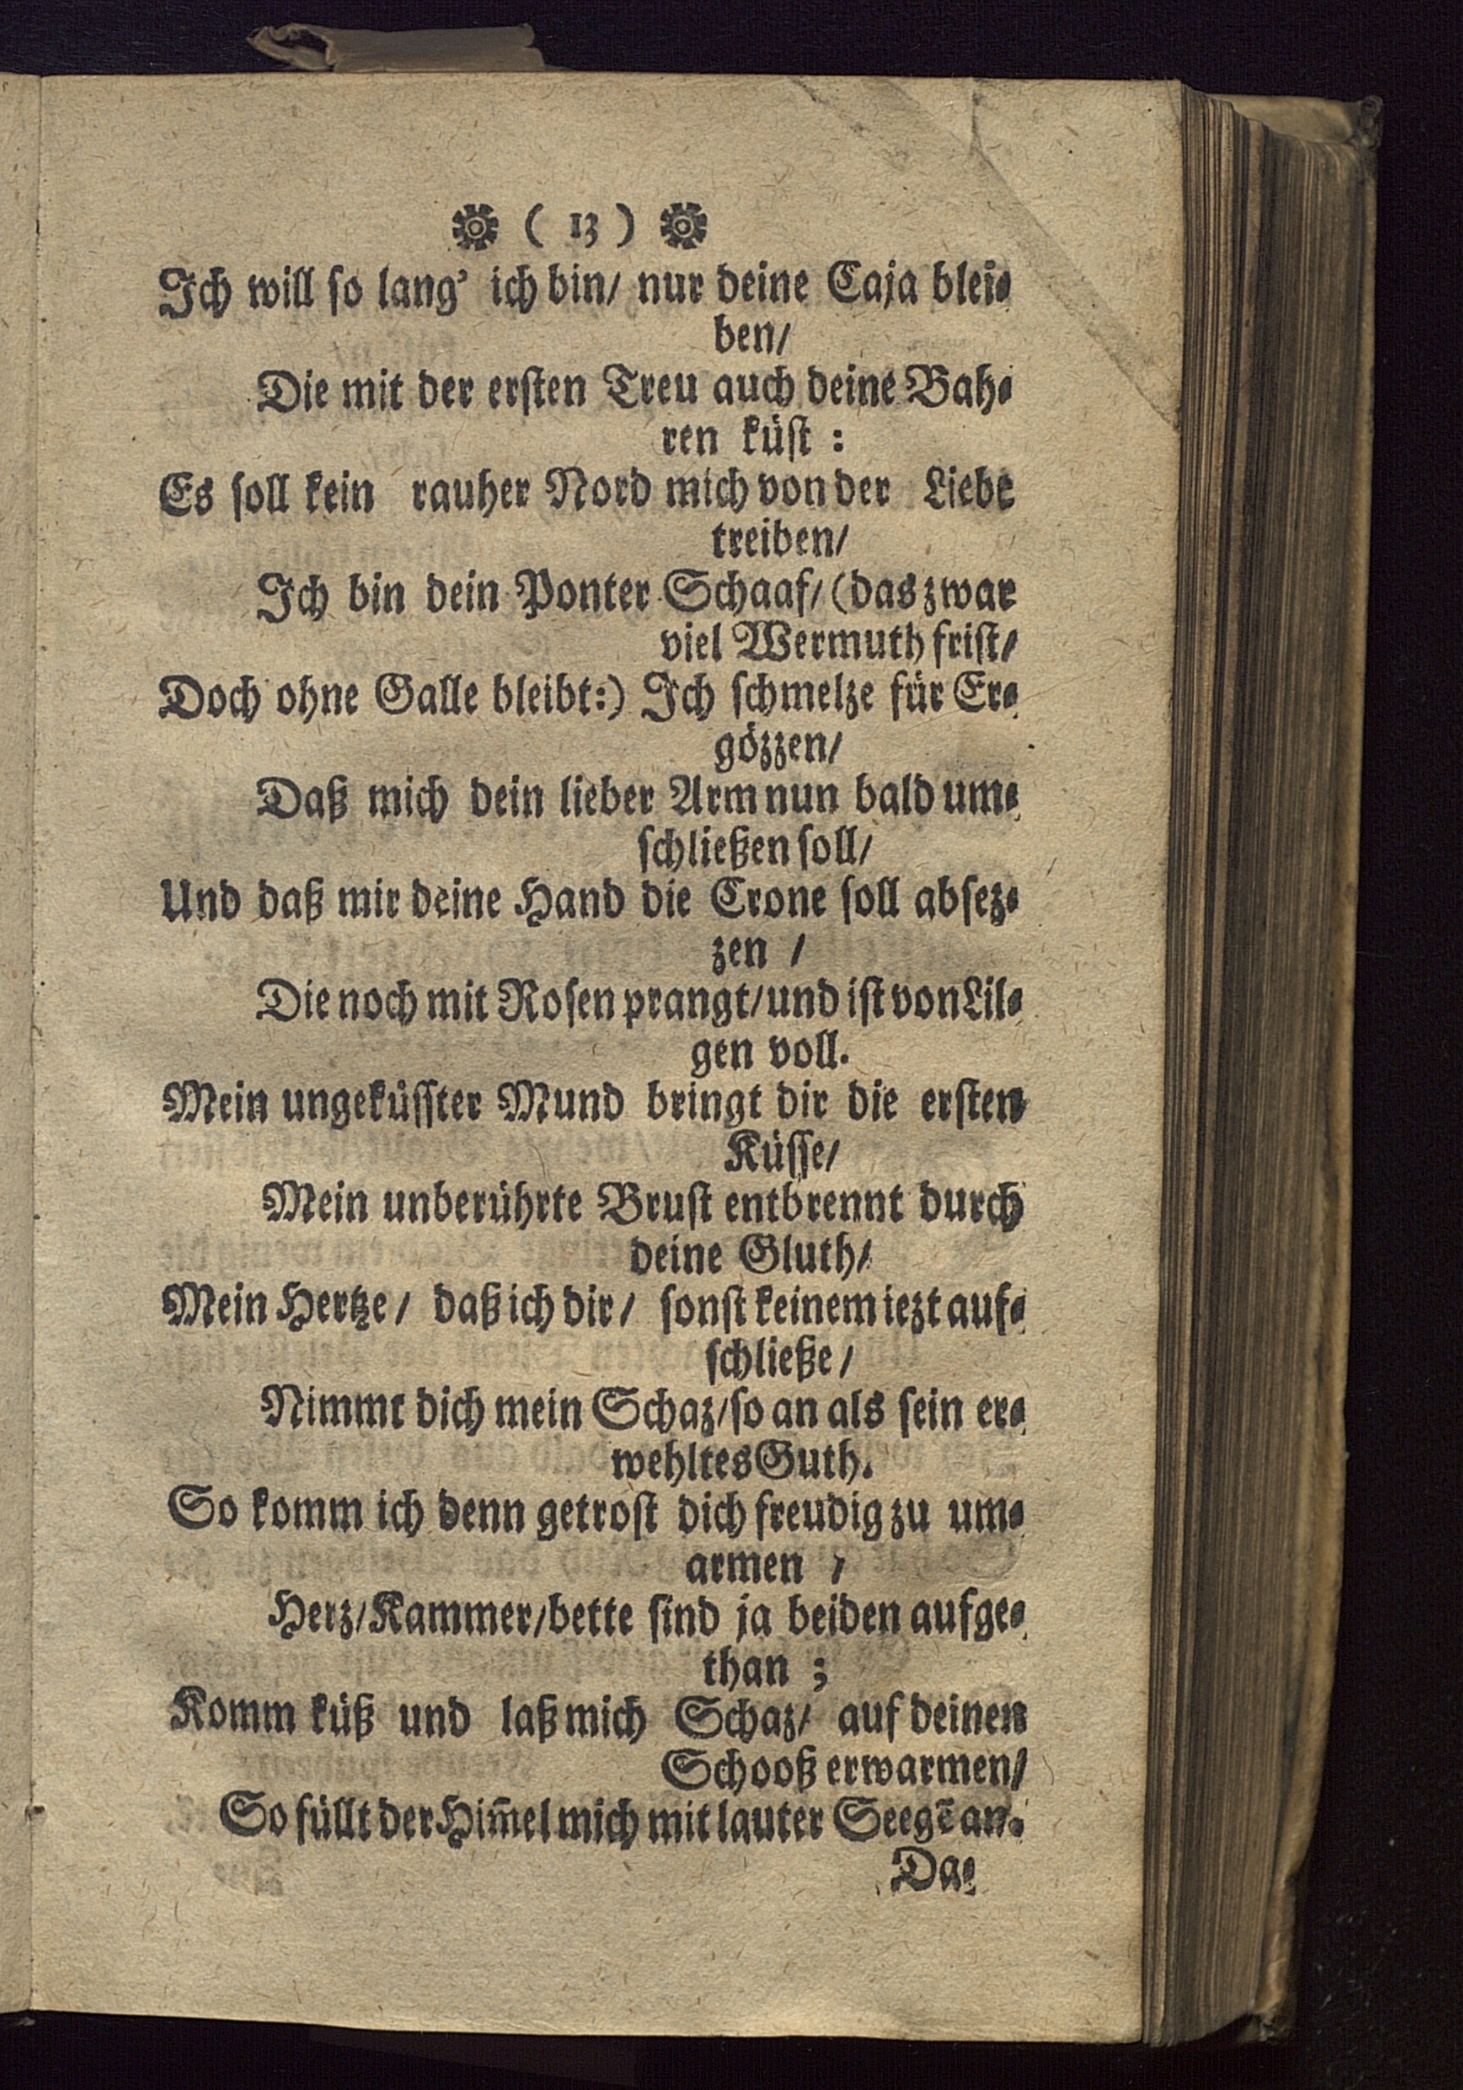 ( 13 )
Ich will so lang' ich bin/ nur deine Caja blei⸗
ben/
Die mit der ersten Treu auch deine Bah⸗
ren küst :
Es soll kein rauher Nord mich von der Liebe
treiben/
Ich bin dein Ponter Schaaf/ (das zwar
viel Wermuth frist/
Doch ohne Galle bleibt:) Ich schmelze für Er⸗
gözzen/
Daß mich dein lieber Arm nun bald um⸗
schließen soll/
Und daß mir deine Hand die Crone soll absez⸗
zen /
Die noch mit Rosen prangt/ und ist von Lil⸗
gen voll.
Mein ungeküsster Mund bringt dir die ersten
Küsse/
Mein unberührte Brust entbrennt durch
deine Gluth/
Mein Hertze/ daß ich dir/ sonst keinem iezt auf⸗
schließe/
Nimmt dich mein Schaz/ so an als sein er⸗
wehltes Guth.
So komm ich denn getrost dich freudig zu um⸗
armen /
Herz/ Kammer/ bette sind ja beiden aufge⸗
than ;
Komm küß und laß mich Schaz/ auf deinen
Schooß erwarmen/
So füllt der Him̄el mich mit lauter Seegē an.
Da⸗